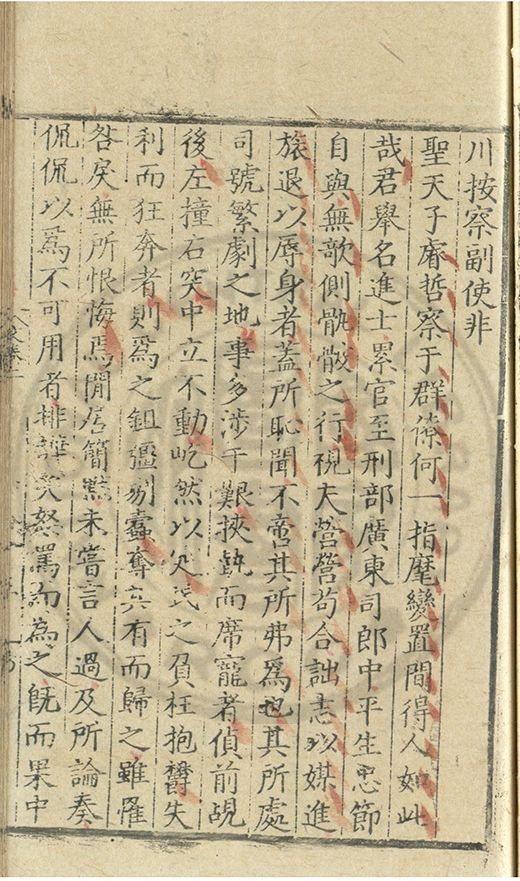 川按察副使非
聖天子睿哲察于群僚何一指麾變置間得人如此
哉君舉名進士累官至刑部廣東司郎中平生忠節
自與無歌側骩骳之行視夫營營苟合詘志以媒進
旅退以辱身者蓋所恥聞不啻其所弗爲也其所處
司號繁劇之地事多涉于艱挾埶而席寵者偵前覘
後左撞右突中立不動屹然以処民之負枉抱欝失
利而狂奔者則爲之鉏彊剔蠹奪其有而歸之雖罹
咎戾無所恨悔焉閒居簡默未嘗言人過及所論奏
侃侃以爲不可用者排誹笑怒罵而為之旣而果中